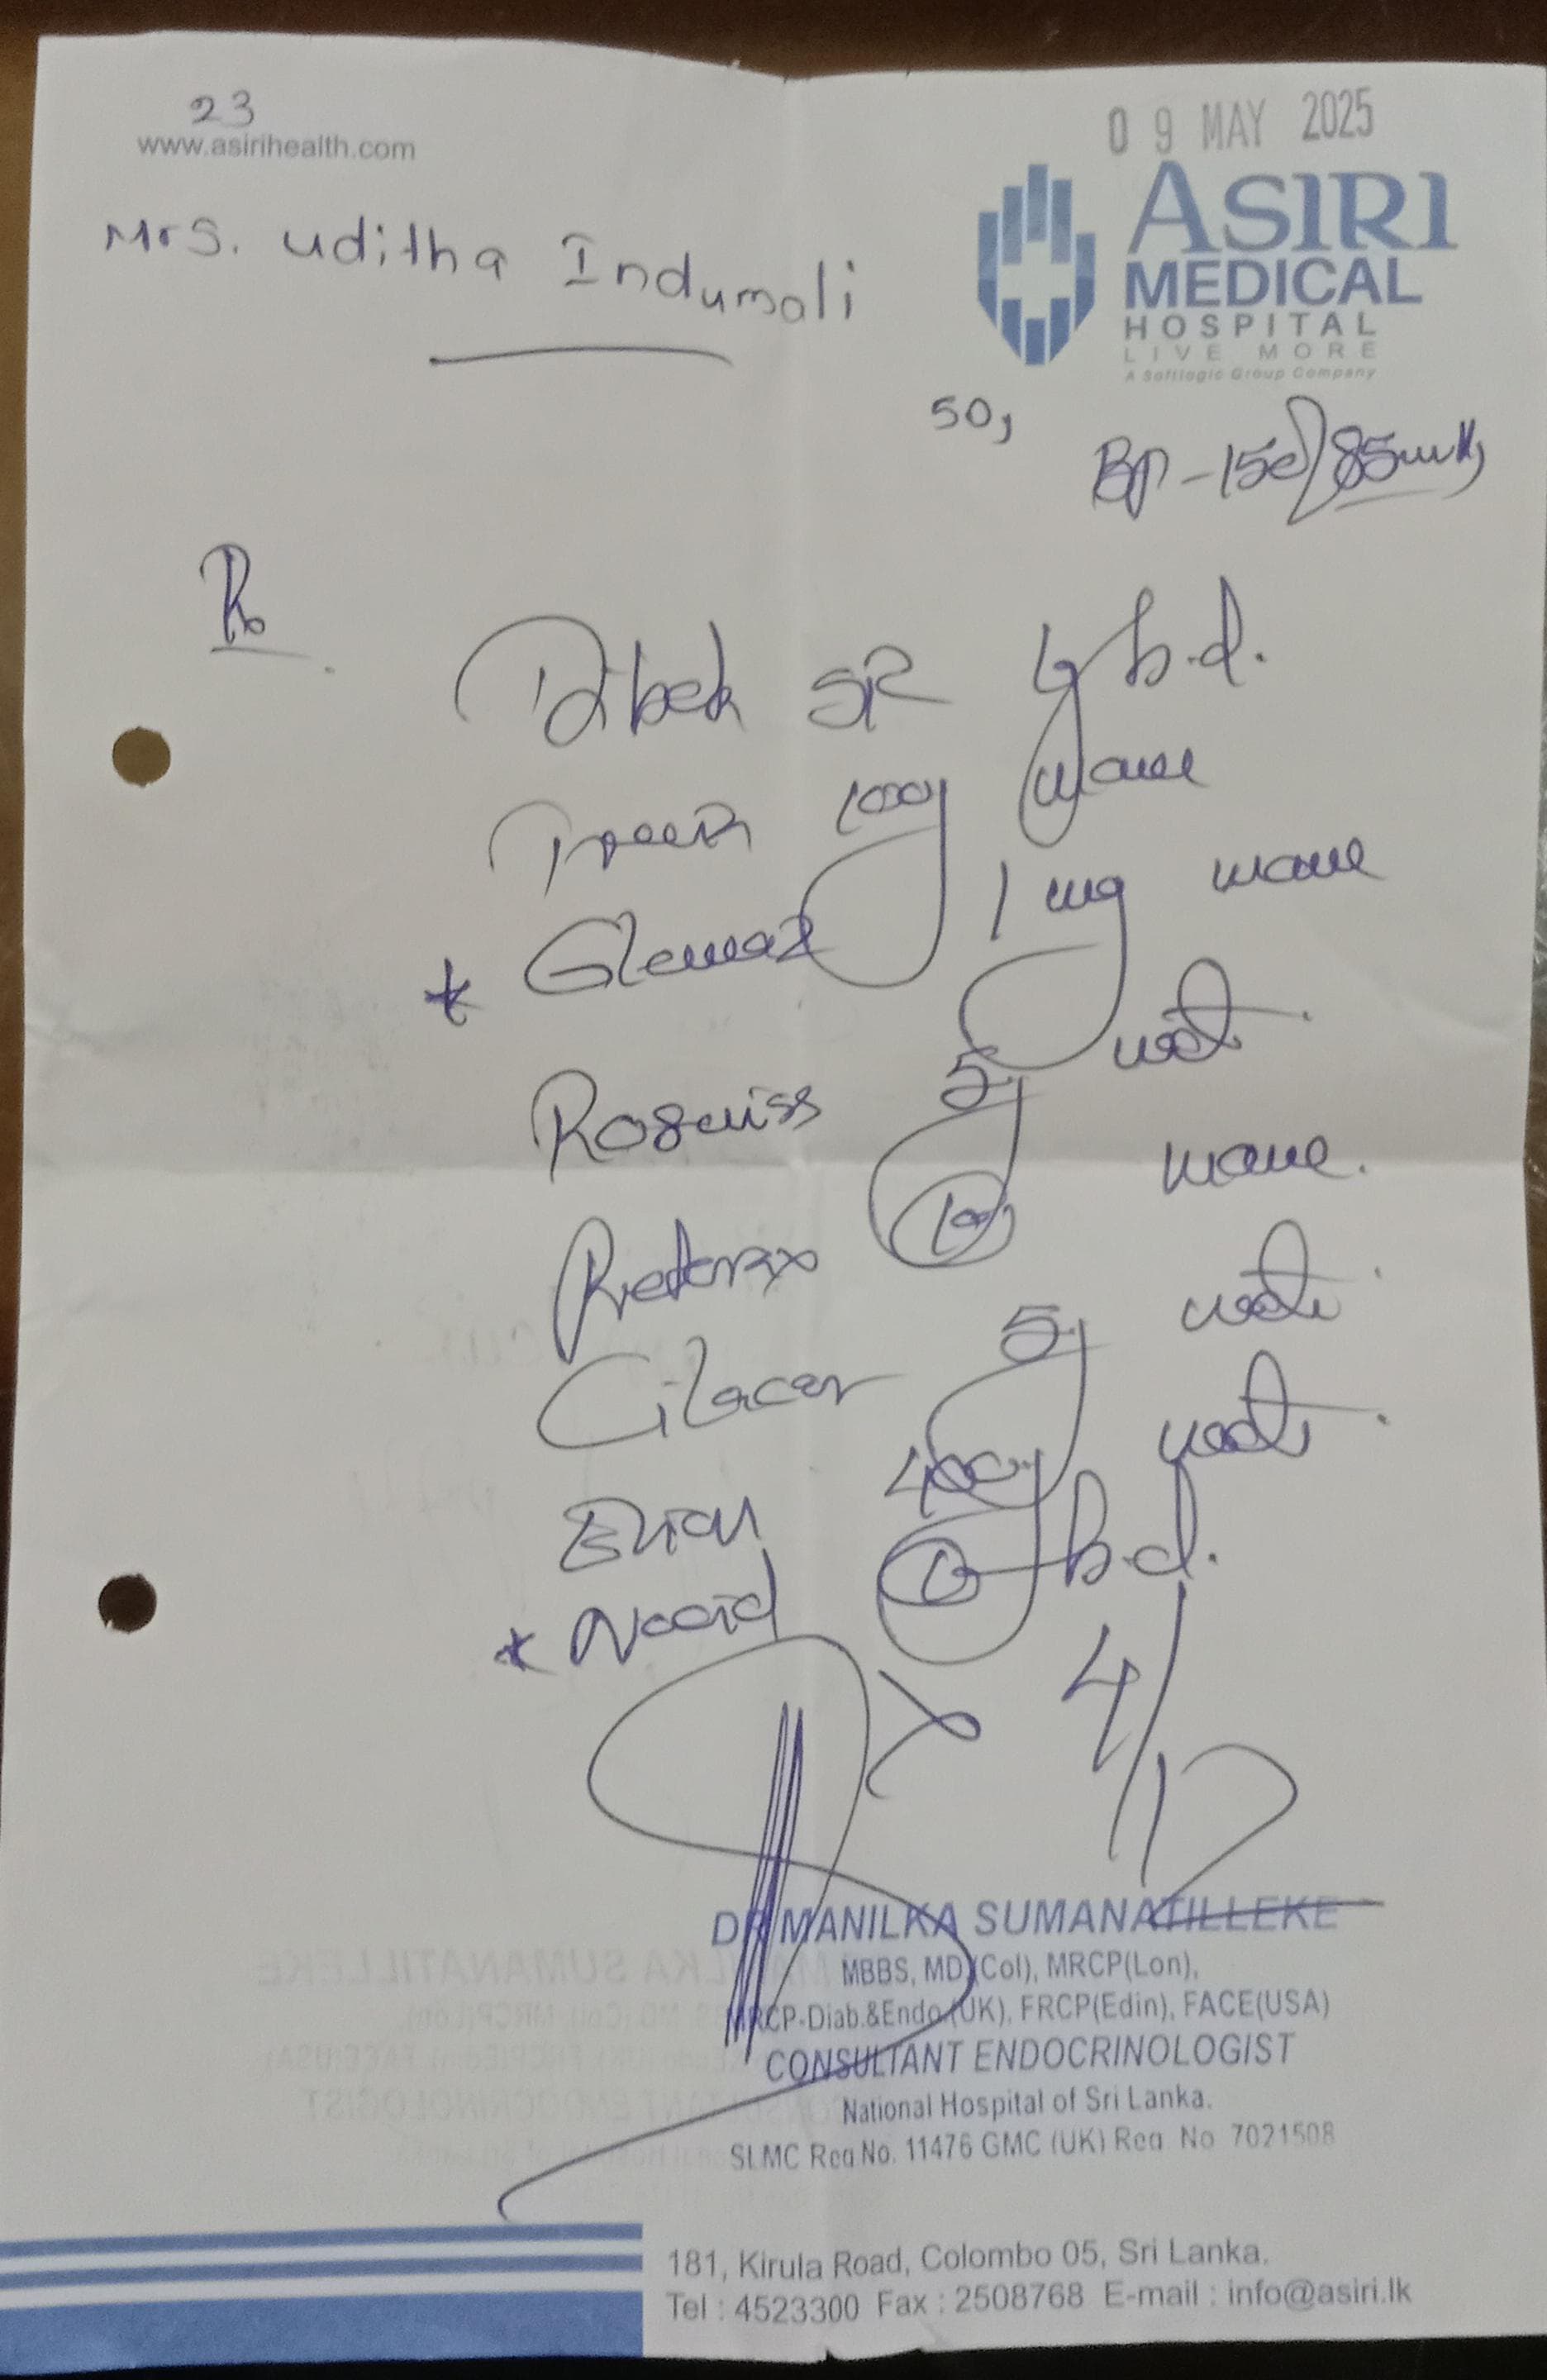 23
www.asirihealth.com
09 MAY 2025
ASIRI
MEDICAL
HOSPITAL
LIVE MORE
A Softlogic Group Company
Mrs. Uditha Indumali
50y
BP - 150/85mmHg
Rx
SR b.d.
100mg mane
* 1 mg mane
Roswiss 5mg nocte
mane.
Cilacar 5mg nocte
400mg nocte
* b.d.
x 4/12
DR MANILKA SUMANATILLEKE
MBBS, MD (Col), MRCP(Lon),
MRCP-Diab.&Endo.(UK), FRCP(Edin), FACE(USA)
CONSULTANT ENDOCRINOLOGIST
National Hospital of Sri Lanka.
SLMC Reg No. 11476 GMC (UK) Reg No 7021508
181, Kirula Road, Colombo 05, Sri Lanka.
Tel : 4523300 Fax : 2508768 E-mail : info@asiri.lk